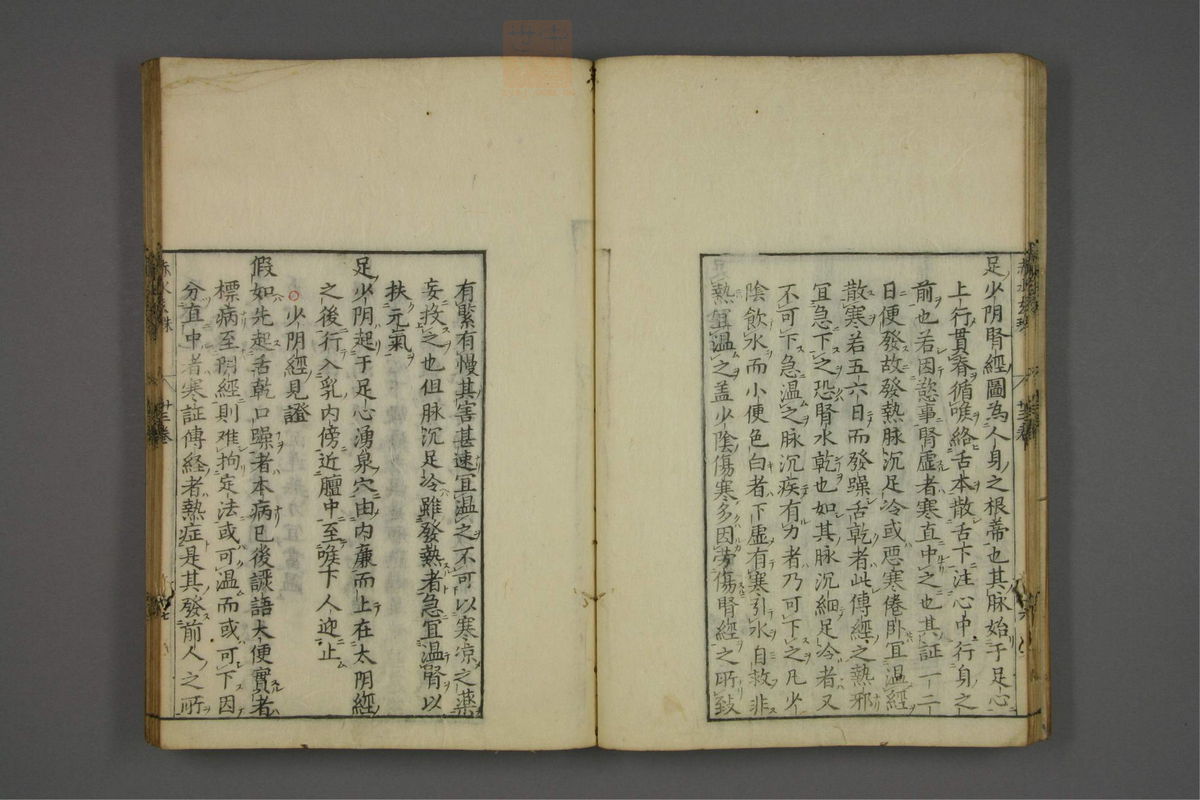 足少阴腎經圖為人身之根蒂也其脉始于足心
上行貫脊循喉絡舌本散舌下注心中行身之
前也若因慾事腎虚者寒直中之也其証一二
日便發故發熱脉沉足冷或恶寒倦卧冝温經
散寒若五六日而發躁舌乾者此傳經之熱邪
冝急下之恐腎水乾也如其脉沉細足冷者又
不可下急温之脉沉疾有力者乃可下之凡少
陰飲水而小便色白者下虚有寒引水自救非
熱冝温之盖少陰傷寒多因劳傷腎經之所致
有緊有慢其害甚速冝温之不可以寒凉之藥
妄投之也但脉沉足冷雖發熱者急冝温腎以
扶元氣
足少阴起于足心湧泉穴由内廉而上在太阴經
之後行入乳内傍近膻中至喉下人迎止
○少阴經見證
假如先起舌乾口躁者本病已後譫語大便實者
標病至阴經則难拘定法或可温而或可下因
分直中者寒証傳経者熱症是其發前人之所